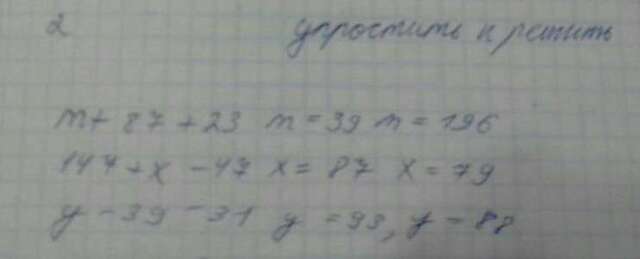 2 упростить и решить
m + 87 + 23 m = 39 m = 196
147 + x - 47 x = 87 x = 79
y - 39 - 31 y = 93, y = 88